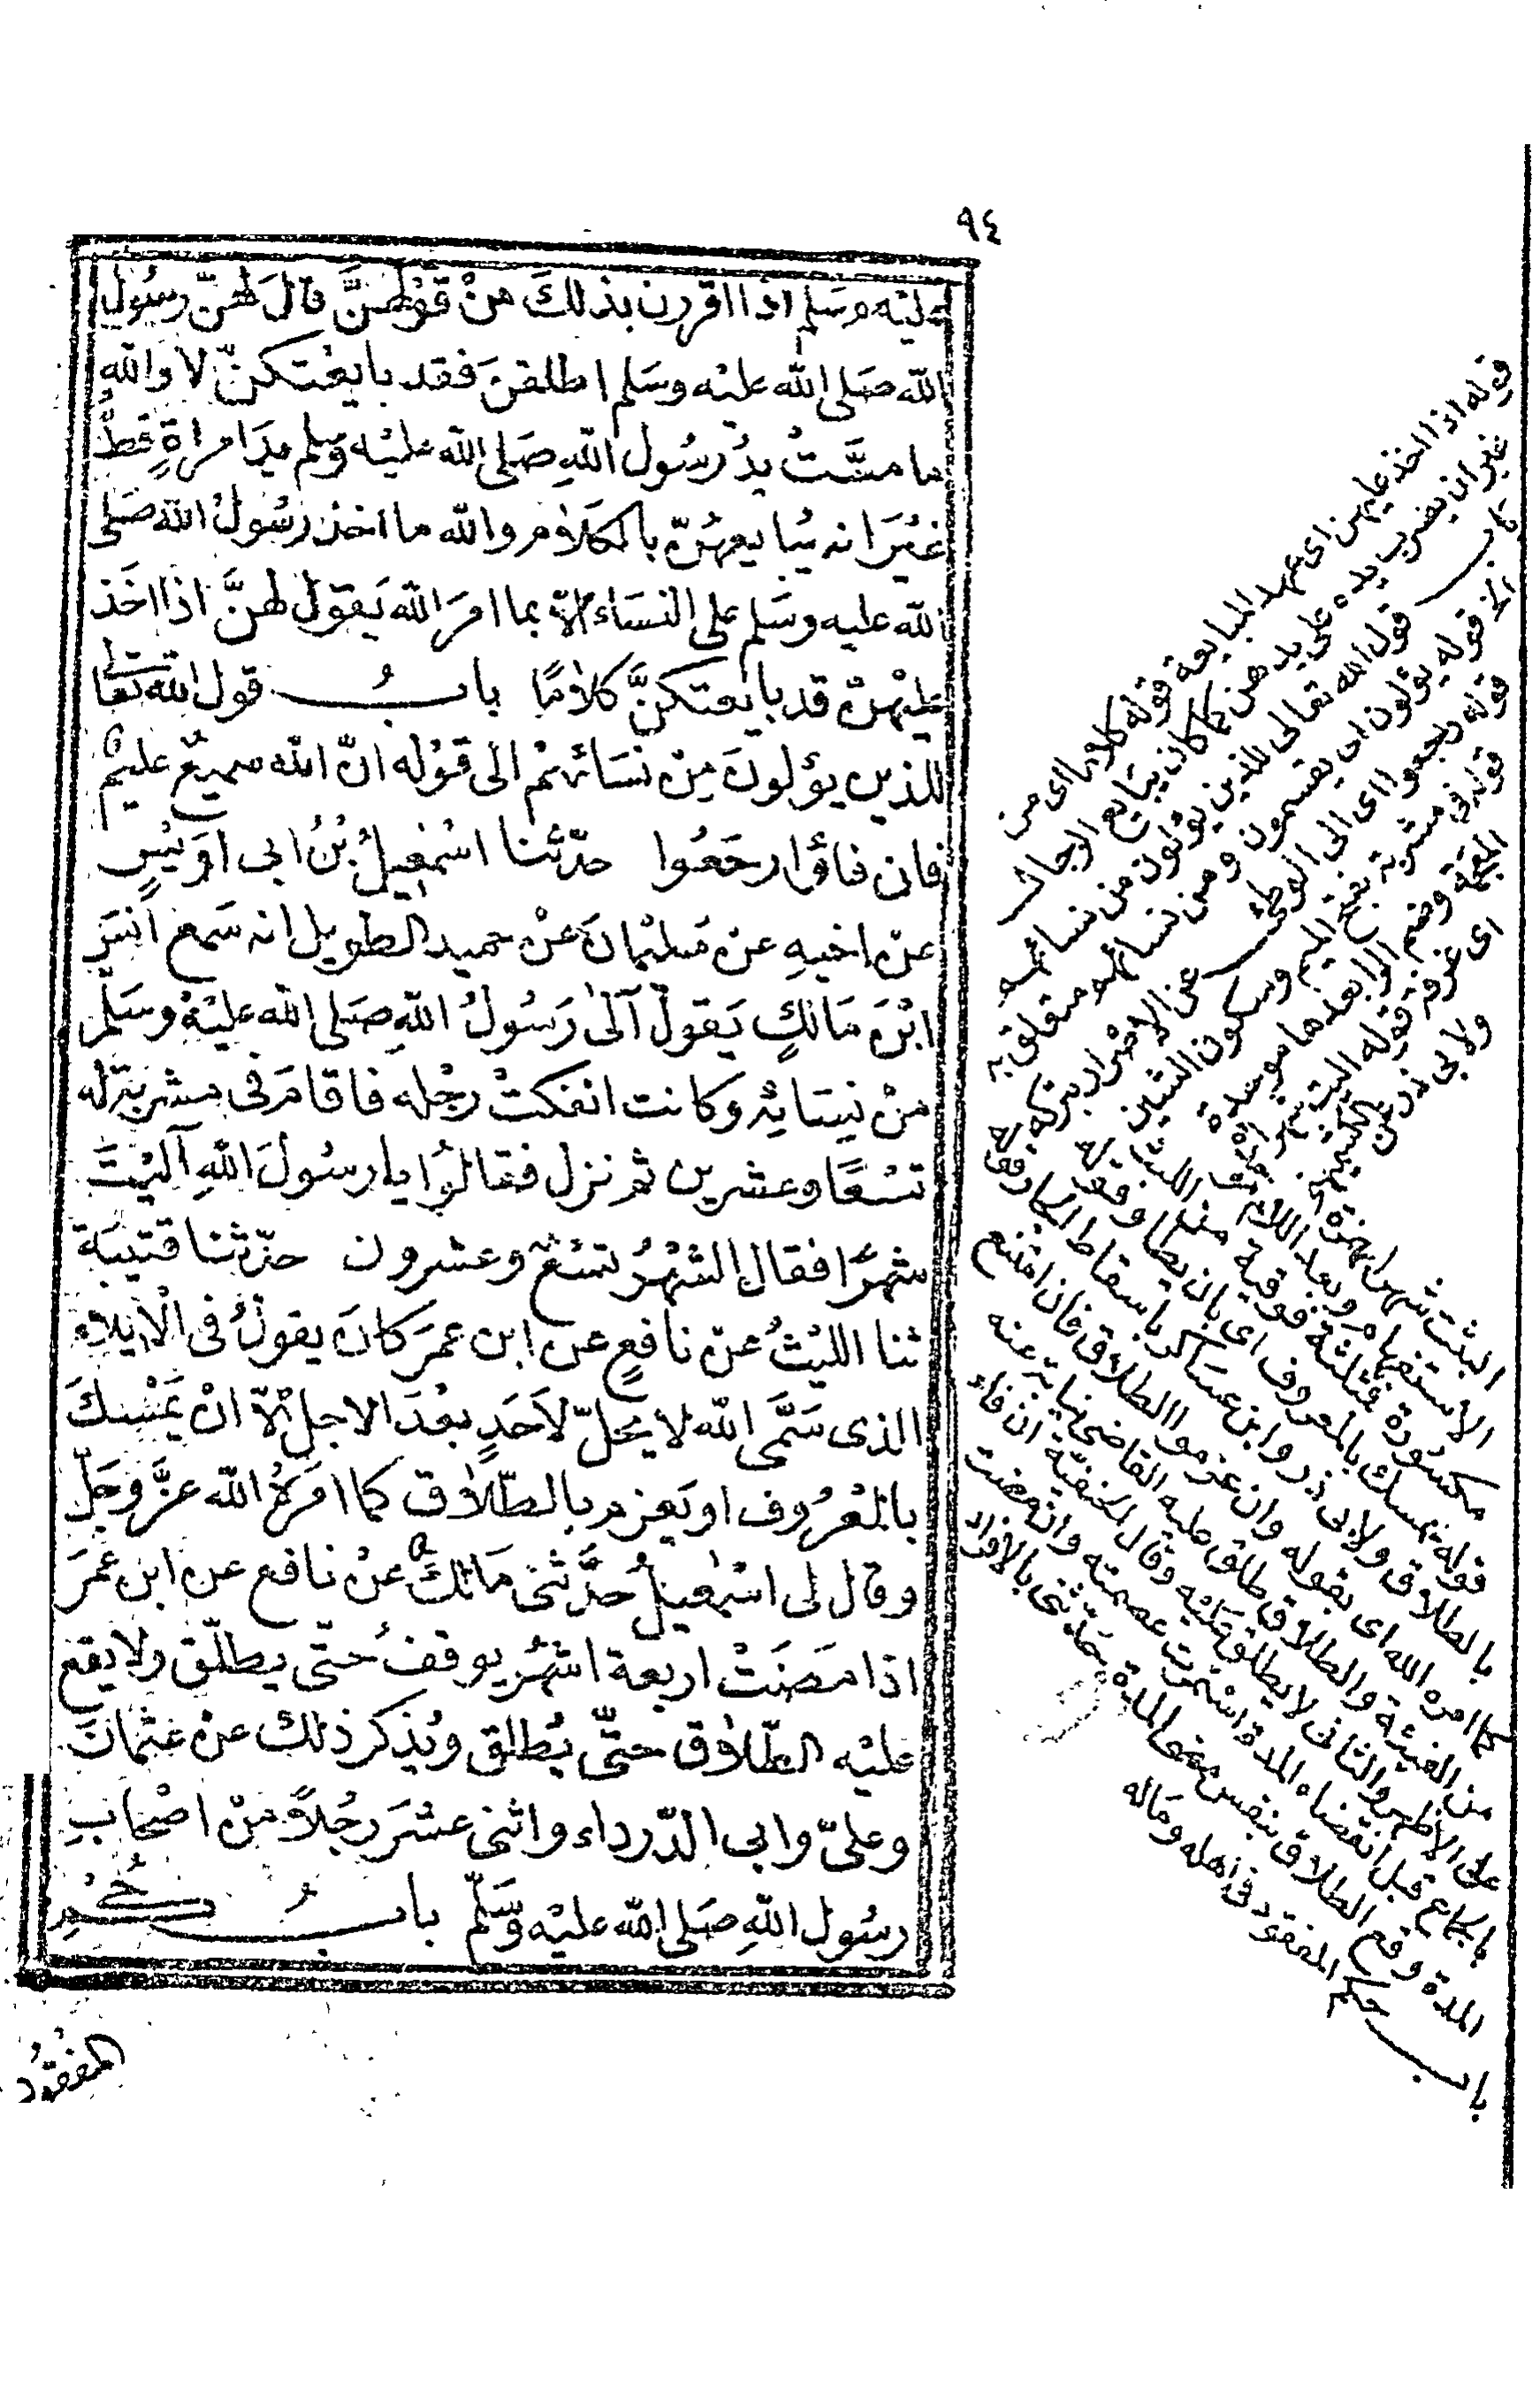 ٩٤
عليْه وسَلم اذا اقررن بذلكَ منْ قوْلهنَّ قالَ لهنّ رسُول
الله صَلى الله عليْه وسَلم انطلقنَ فقد بايعْتكنّ لا والله
ما مسَّتْ يدُ رسُول اللهِ صَلى الله عليْه وَسلم يدَ امراةٍ قطُّ
غيْرَ انه يُبايعهُنّ بالكَلاٰم والله ما اخذ رسُولُ الله صَلى
الله عليه وسَلم على النسَاء الّا بما امرَ الله يَقول لهنَّ اذا اخَذ
عليْهنْ قد بايعتكنَّ كلاٰمًا بابُ قول الله تعَالى
للذين يؤلونَ مِنْ نسَائهمْ الى قوْله انّ الله سميعٌ عليمٌ
فان فاؤا رجَعُوا حدّثنا اسْمٰعيلُ بْنُ ابى اوَيْسٍ
عنْ اخيهِ عنْ سَليْمانَ عنْ حميد الطويل انه سَمع انسَ
ابْنَ مَالكٍ يَقولُ آلىٰ رَسُولُ اللهِ صَلى الله عليْهْ وسَلم
منْ نِسَائِهْ وكانت انفكتْ رجْله فاقامَ فى مشربةٍ له
تسْعًا وعشرين ثم نزل فقالوُا يا رسُولَ اللهِ آليْتَ
شهرًا فقال الشهْرُ تسْعٌ وعشرون حدّثنا قتيبَة
ثنا الليْثُ عنْ نافعٍ عن ابن عمَر كانَ يقولُ فى الْايلاء
الذى سَمَّى الله لا يحَلّ لاَحَدٍ بعْدَ الاجل الّا انْ يمْسِكَ
بالمْعرُوف او يَعزم بالطّلاٰق كما امرَهُ الله عزَّ وجَلّ
وقال لى اسْمٰعيلُ حدَّثنى مَالكٌ عنْ نافع عن ابن عمَر
اذا مضَتْ اربعة اشهُر يوقفُ حتّى يطلّق ولا يقع
عليْه الطّلاٰق حتَّى يُطلق ويُذكر ذلك عنْ عثمانَ
وعلىّ وابى الدّرداء واثنى عشَر رجُلاً منْ اصْحَابِ
رسُول اللهِ صَلى الله عليْه وَسَلّم بابُ حُكْمِ
المفقُود
قوله اذا اخذ عليهن اى عهد المبايعة قوله كلاما اى من
غير ان يضرب يده على يدهن كما كان يبايع الرجال
باب قول الله تعالى للذين يؤلون من نسائهم
الخ قوله يؤلون اى يقسمون ومن نسائهم متعلق به
قوله رجعوا اى الى الوطئ عن الاضرار بتركه
قوله فى مشربة بفتح الميم وسكون الشين
المعجمة وضم الراء بعدها موحدة
اى غرفة قوله آليت
ولابى ذر عن الكشميهنى
البثت شهرا بهمزة
الاستفهام وبعد اللام
مكسورة فمثلثة فوقية من اللبث
قوله يمسك بالمعروف اى بان يطأ وقوله
بالطلاق ولابى ذر وابن عساكر باسقاط الجار وقوله
كما امره الله اى بقوله وان عزموا الطلاق فان امتنع
من الفيئة والطلاق طلق عليه القاضى نيابة عنه
على الاظهر والثانى لا يطلق عليه وقال الحنفية ان فاء
بالجماع قبل انقضاء المدة استمرت عصمته وان مضت
المدة وقع الطلاق بنفس مضى المدة حدثنى بالافراد
باب حكم المفقود فى اهله وماله